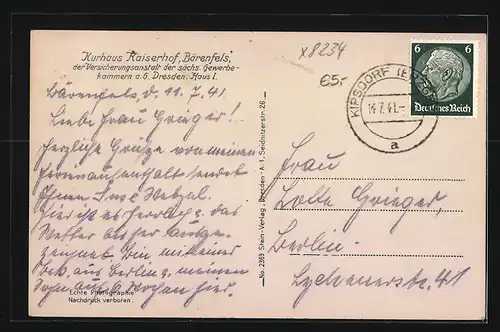 Kurhaus Kaiserhof, Bärenfels,
der Versicherungsanstalt der sächs. Gewerbe-
kammern a.G. Dresden. Haus I.
x8234
65.-
6 6
Deutsches Reich
KIPSDORF (ERZGEB)
14.7.41.-
a
Bärenfels, d 11.7.41
Liebe Frau Grieger!
Herzliche Grüße von meinem
Ferienaufenthalt sendet
Ihnen
Hier ist es herrlich u. das
Wetter
bin mit einer
Bek. aus Berlin u. meinem
Sohn auf 6 Wochen hier.
Echte Photographie
Nachdruck verboren
No. 2369 Stein-Verlag, Dresden-A 1, Seidnitzerstr. 26
Frau
Lotte Grieger
Berlin
Lychenerstr. 41